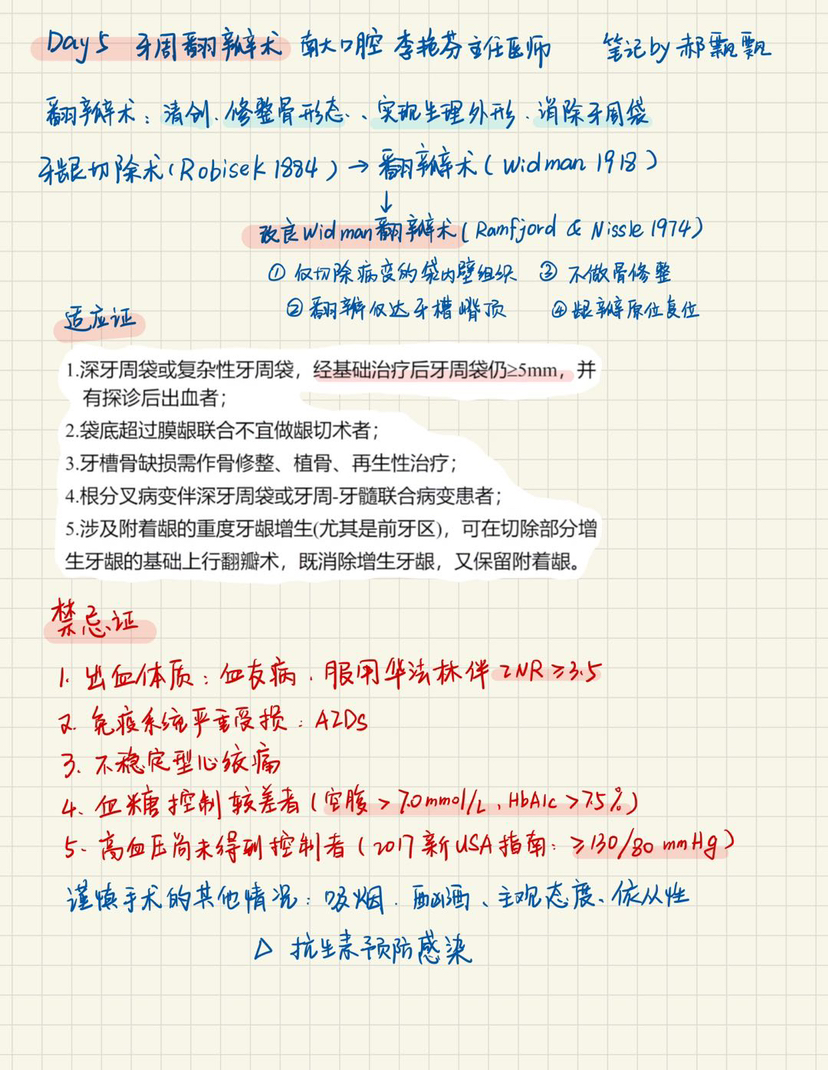 Day 5 牙周翻瓣术 南大口腔 李艳芬主任医师 笔记by 郝飘飘
翻瓣术：清创、修整骨形态、、实现生理外形、消除牙周袋
牙龈切除术(Robisek 1884) → 翻瓣术(Widman 1918)
↓
改良Widman翻瓣术(Ramfjord & Nissle 1974)
① 仅切除病变的袋内壁组织 ③ 不做骨修整
② 翻瓣仅达牙槽嵴顶 ④龈瓣原位复位
适应证
1.深牙周袋或复杂性牙周袋，经基础治疗后牙周袋仍≥5mm，并
有探诊后出血者；
2.袋底超过膜龈联合不宜做龈切术者；
3.牙槽骨缺损需作骨修整、植骨、再生性治疗；
4.根分叉病变伴深牙周袋或牙周-牙髓联合病变患者；
5.涉及附着龈的重度牙龈增生(尤其是前牙区)，可在切除部分增
生牙龈的基础上行翻瓣术，既消除增生牙龈，又保留附着龈。
禁忌证
1. 出血体质：血友病、服用华法林伴 INR ≥3.5
2. 免疫系统严重受损：AIDs
3. 不稳定型心绞痛
4. 血糖控制较差者(空腹 > 7.0mmol/L、HbA1c >7.5%)
5. 高血压尚未得到控制者(2017新USA指南：≥130/80 mmHg)
谨慎手术的其他情况：吸烟、酗酒、主观态度、依从性
△ 抗生素预防感染